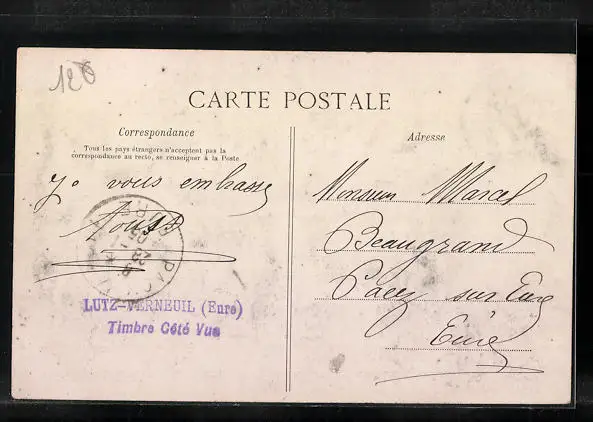 120
CARTE POSTALE
Correspondance
Tous les pays étrangers n'acceptent pas la
correspondance au recto, se renseigner à la Poste
Je vous embrasse
LUTZ-VERNEUIL (Eure)
Timbre Côté Vue
Adresse
Monsieur Marcel
Beaugrand
Pacy sur Eure
Eure